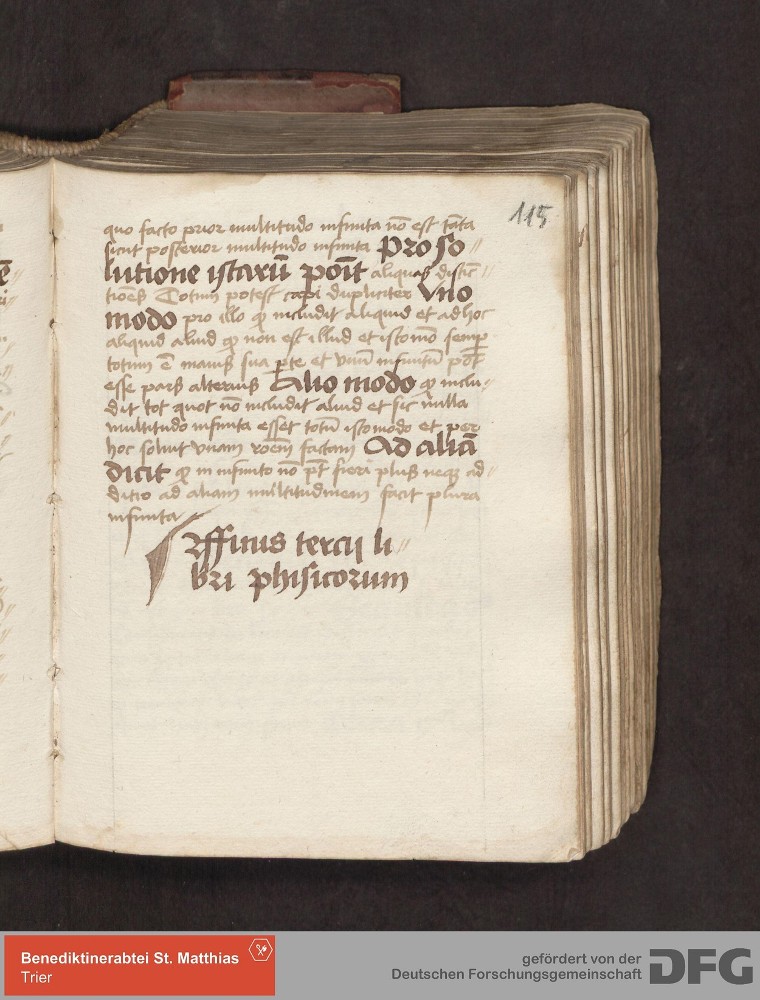 115
quo facto prior multitudo infinita nō est tāta
sicut posterior multitudo infinita Pro so //
lutione istarū poīt aliquas distīc //
tiones Totum potest capi dupliciter Vno
modo pro illo qd includit aliquid et ad hoc
aliquid aliud qd non est illud et isto mō semp
totum ē maius sua pte et vnū infinitū pōt
esse pars alterius Alio modo qd inclu //
dit tot quot nō includit aliud et sic nulla
multitudo infinita esset totū isto modo et per
hoc soluit vnam rōem factam Ad aliā
dicit qd in infinito nō pōt fieri plus neqz ad //
ditio ad aliam multitudinem facit plura
infinita
Et ffinis tercij li //
bri phisicorum
Benediktinerabtei St. Matthias
Trier
gefördert von der
Deutschen Forschungsgemeinschaft
DFG